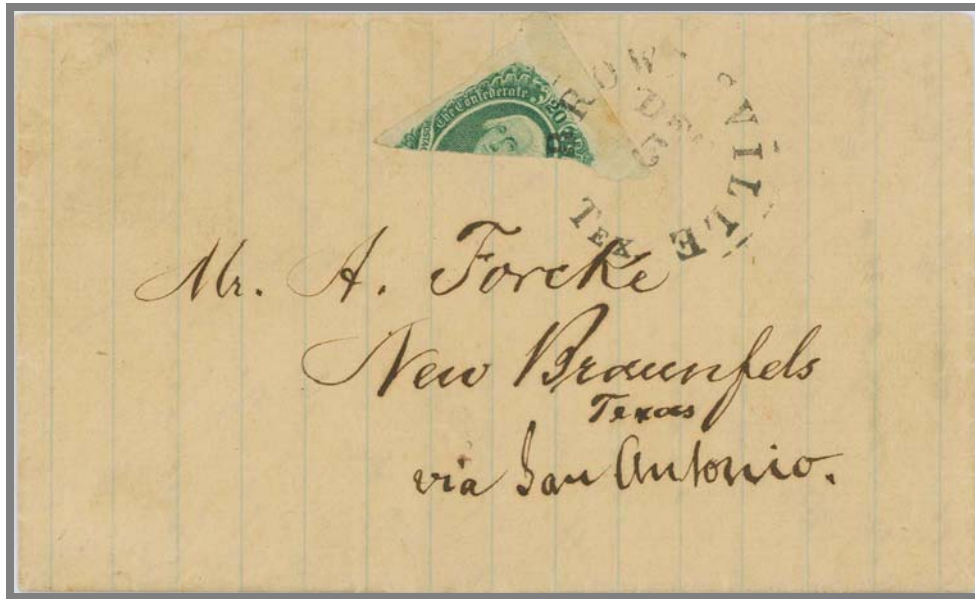 The Confederate
20
BROW
VILLE
DEC
5
TEX
Mr. A. Forcke
New Braunfels
Texas
via San Antonio.